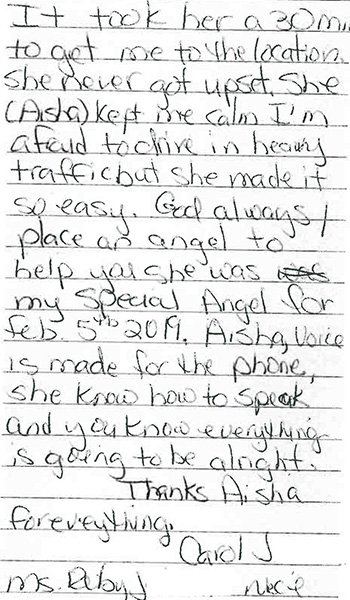 It took her a 30 min
to get me to the location.
She never got upset. She
(Aisha) kept me calm I'm
afraid to drive in heavy
traffic but she made it
so easy. God always
place an angel to
help you she was
my Special Angel for
feb. 5th 2019. Aisha, Voice
is made for the phone,
she know how to speak
and you know everything
is going to be alright.
Thanks Aisha
for eveything.
Carol J
Ms. Ruby J